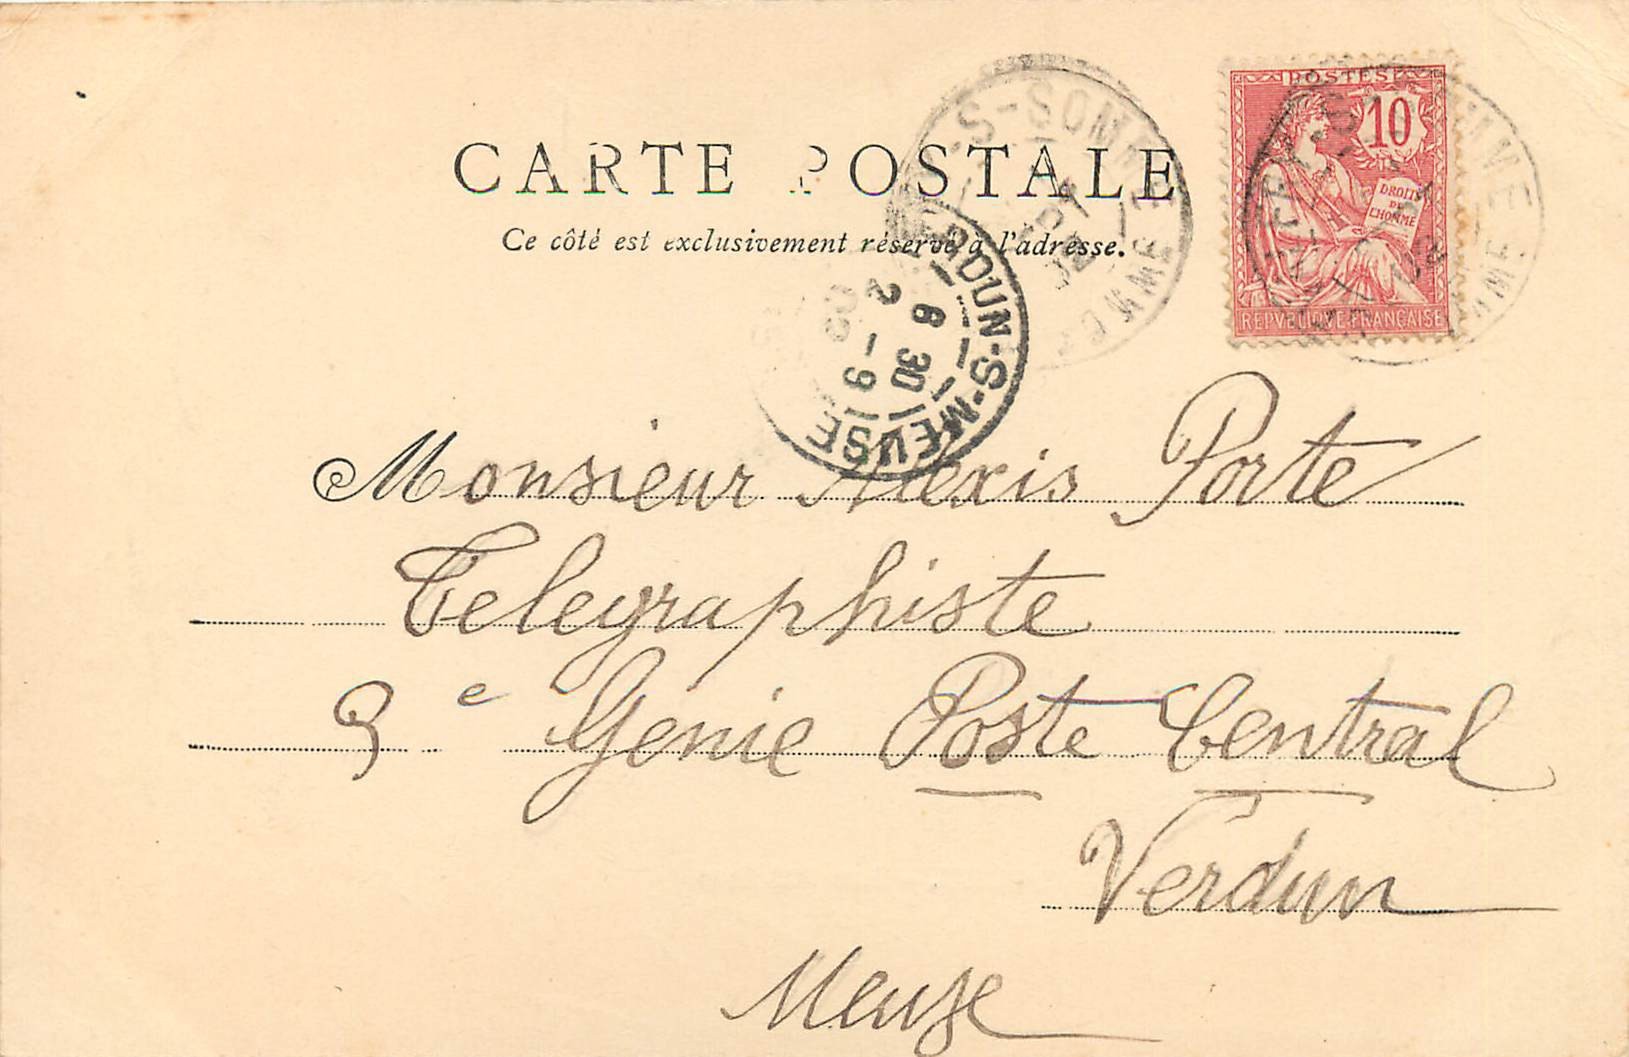 CARTE POSTALE
Ce côté est exclusivement réservé à l'adresse.
POSTES
10
DROITS
DE
L'HOMME
REPVBLIQVE FRANÇAISE
S-SOMME
SOMME
VERDUN-S-MEUSE
8 30
2 -9
02
MEUSE
Monsieur Alexis Porte
Telegraphiste
9e Génie Poste Central
Verdun
Meuse